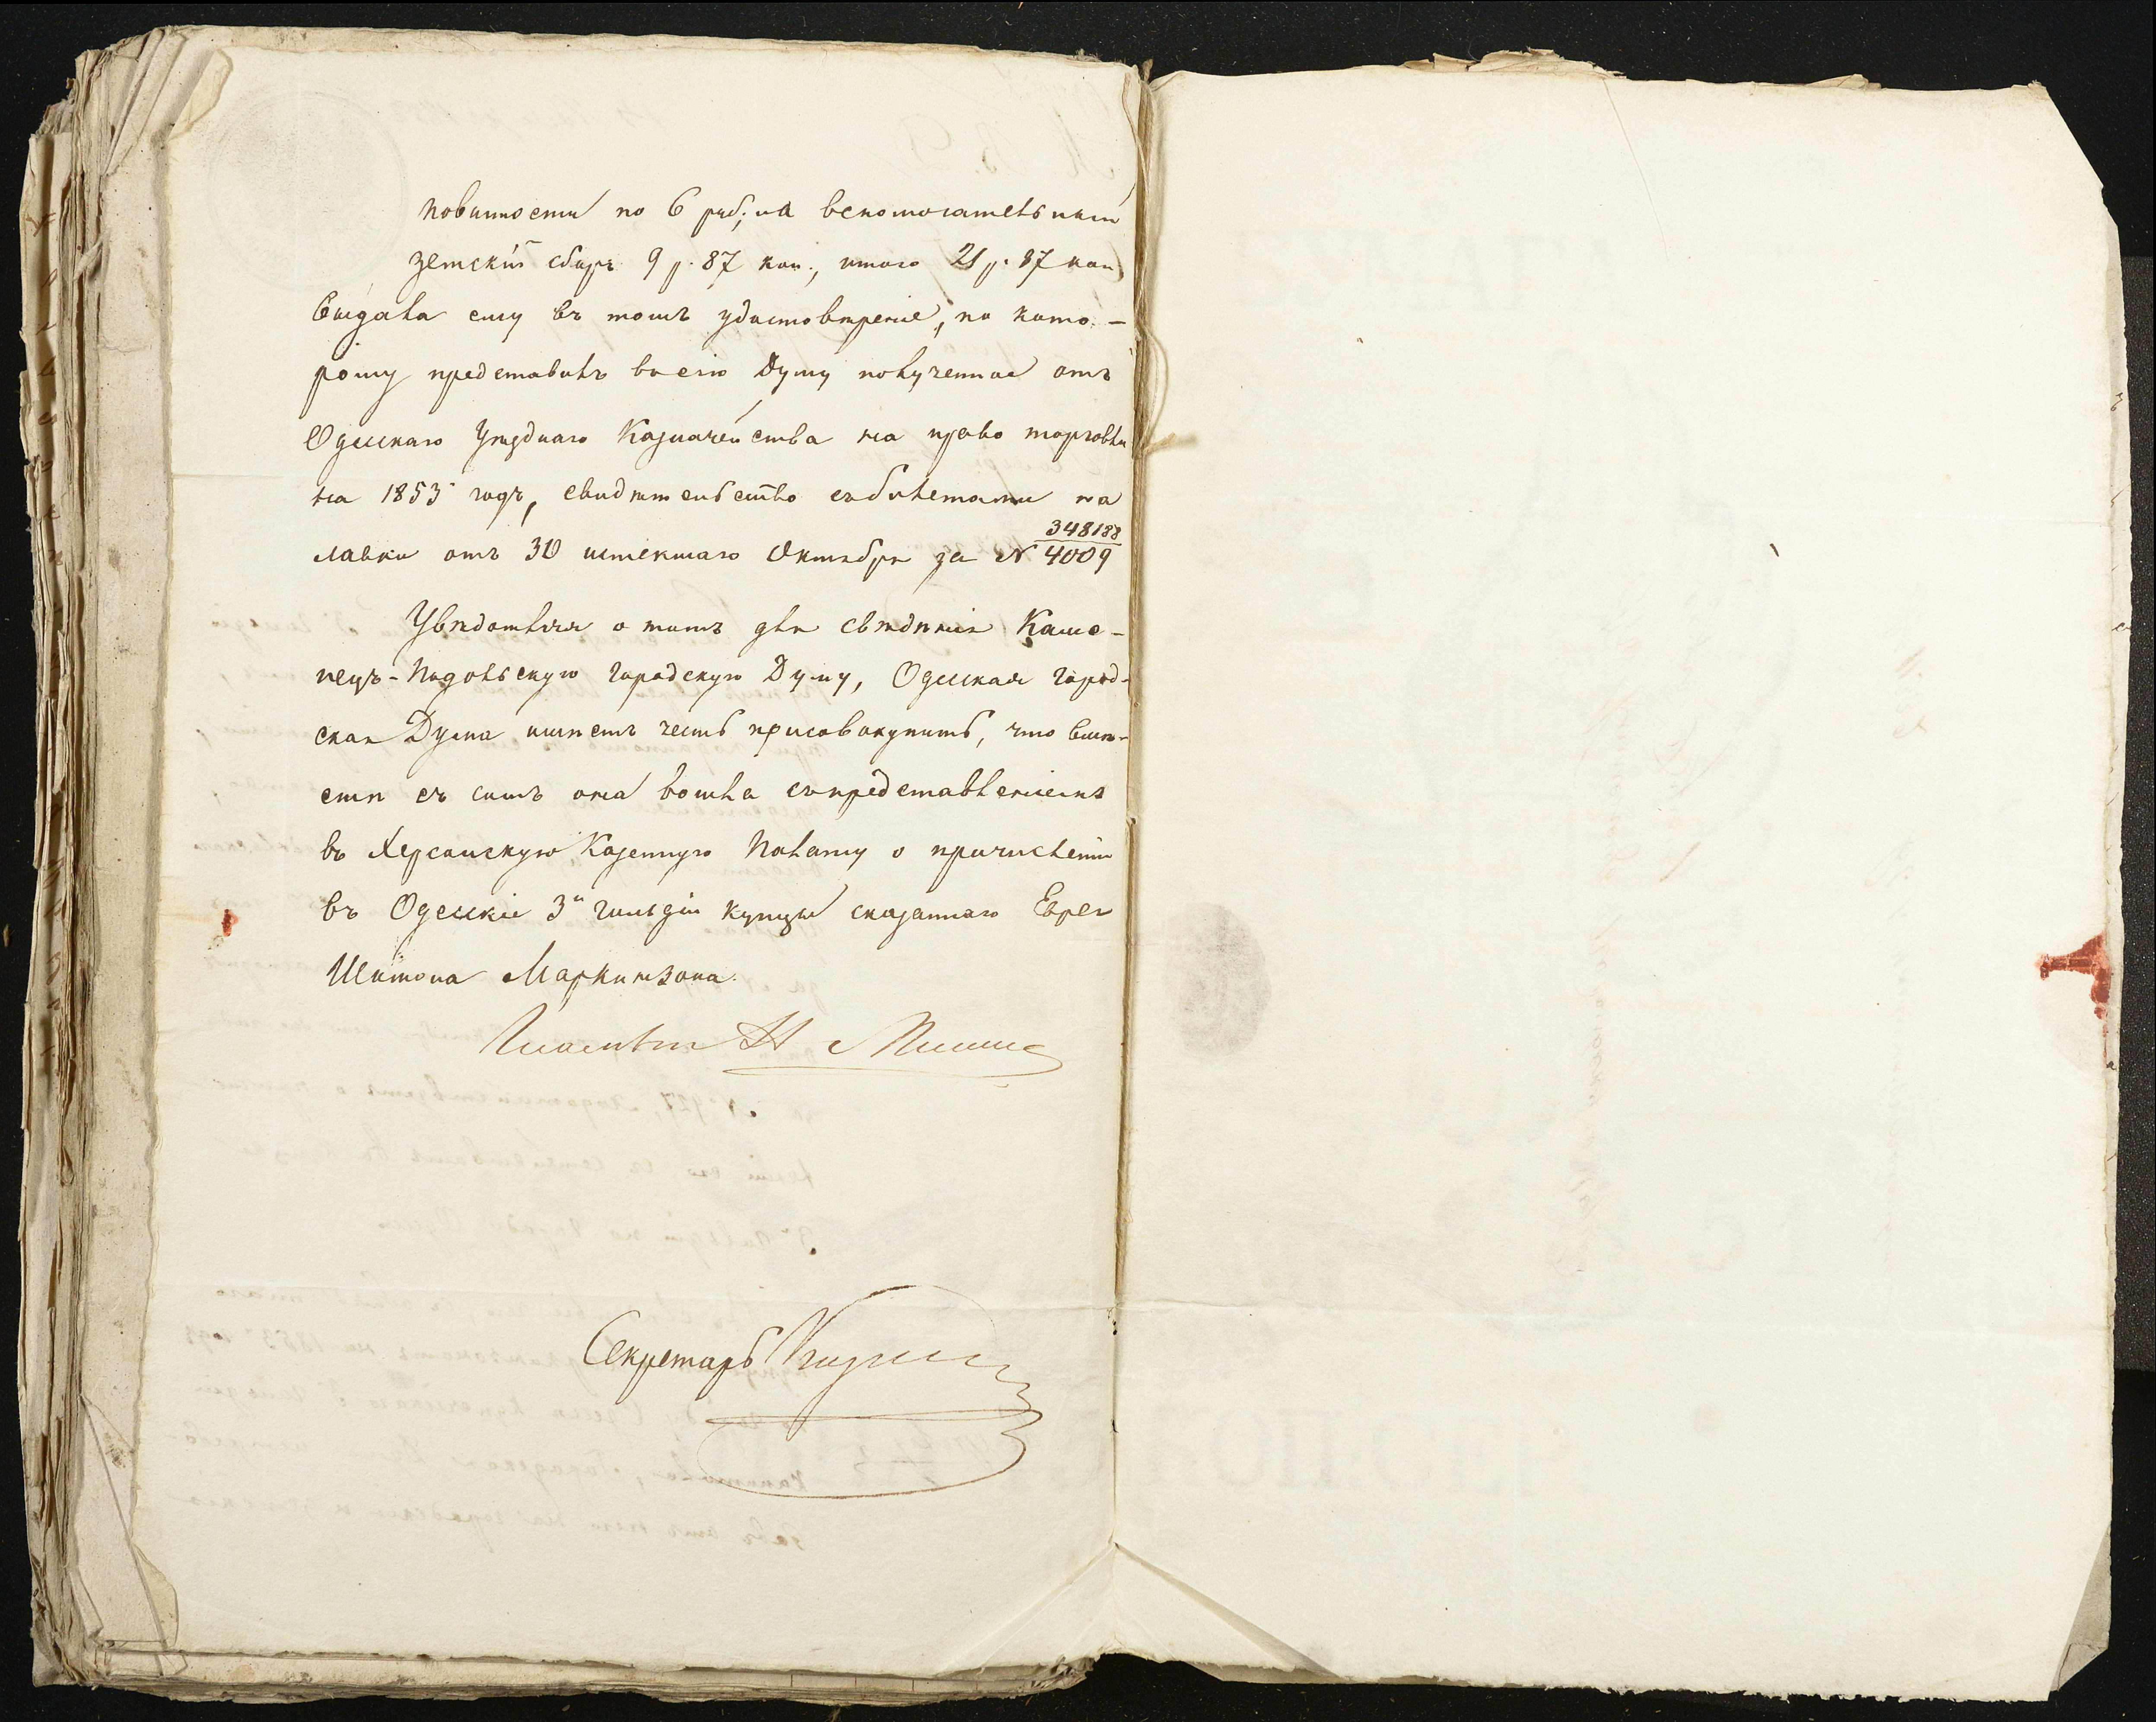 повинности по 6 руб; на вспомогательный
земскій сборъ 9 р. 87 коп., итого 21 р. 87 коп.
выдала ему въ томъ удостовѣреніе, по кото-
рому представилъ въ сію Думу полученное отъ
Одесскаго Уѣзднаго Казначейства на право торговли
на 1853 годъ, свидѣтельство съ билетами на
лавки отъ 30 истекшаго Октября за № 348188
4009
Увѣдомляя о томъ для свѣдѣнія Каме-
нецъ-Подольскую городскую Думу, Одесская город-
ская Дума имѣетъ честь присовокупить, что вмѣ-
стѣ съ симъ она вошла съ представленіемъ
въ Херсонскую Казенную Палату о причисленіи
въ Одесскіе 3й гильдіи купцы сказаннаго Еврея
Шлиома Маркимзона.
Гласный Н
Секретарь